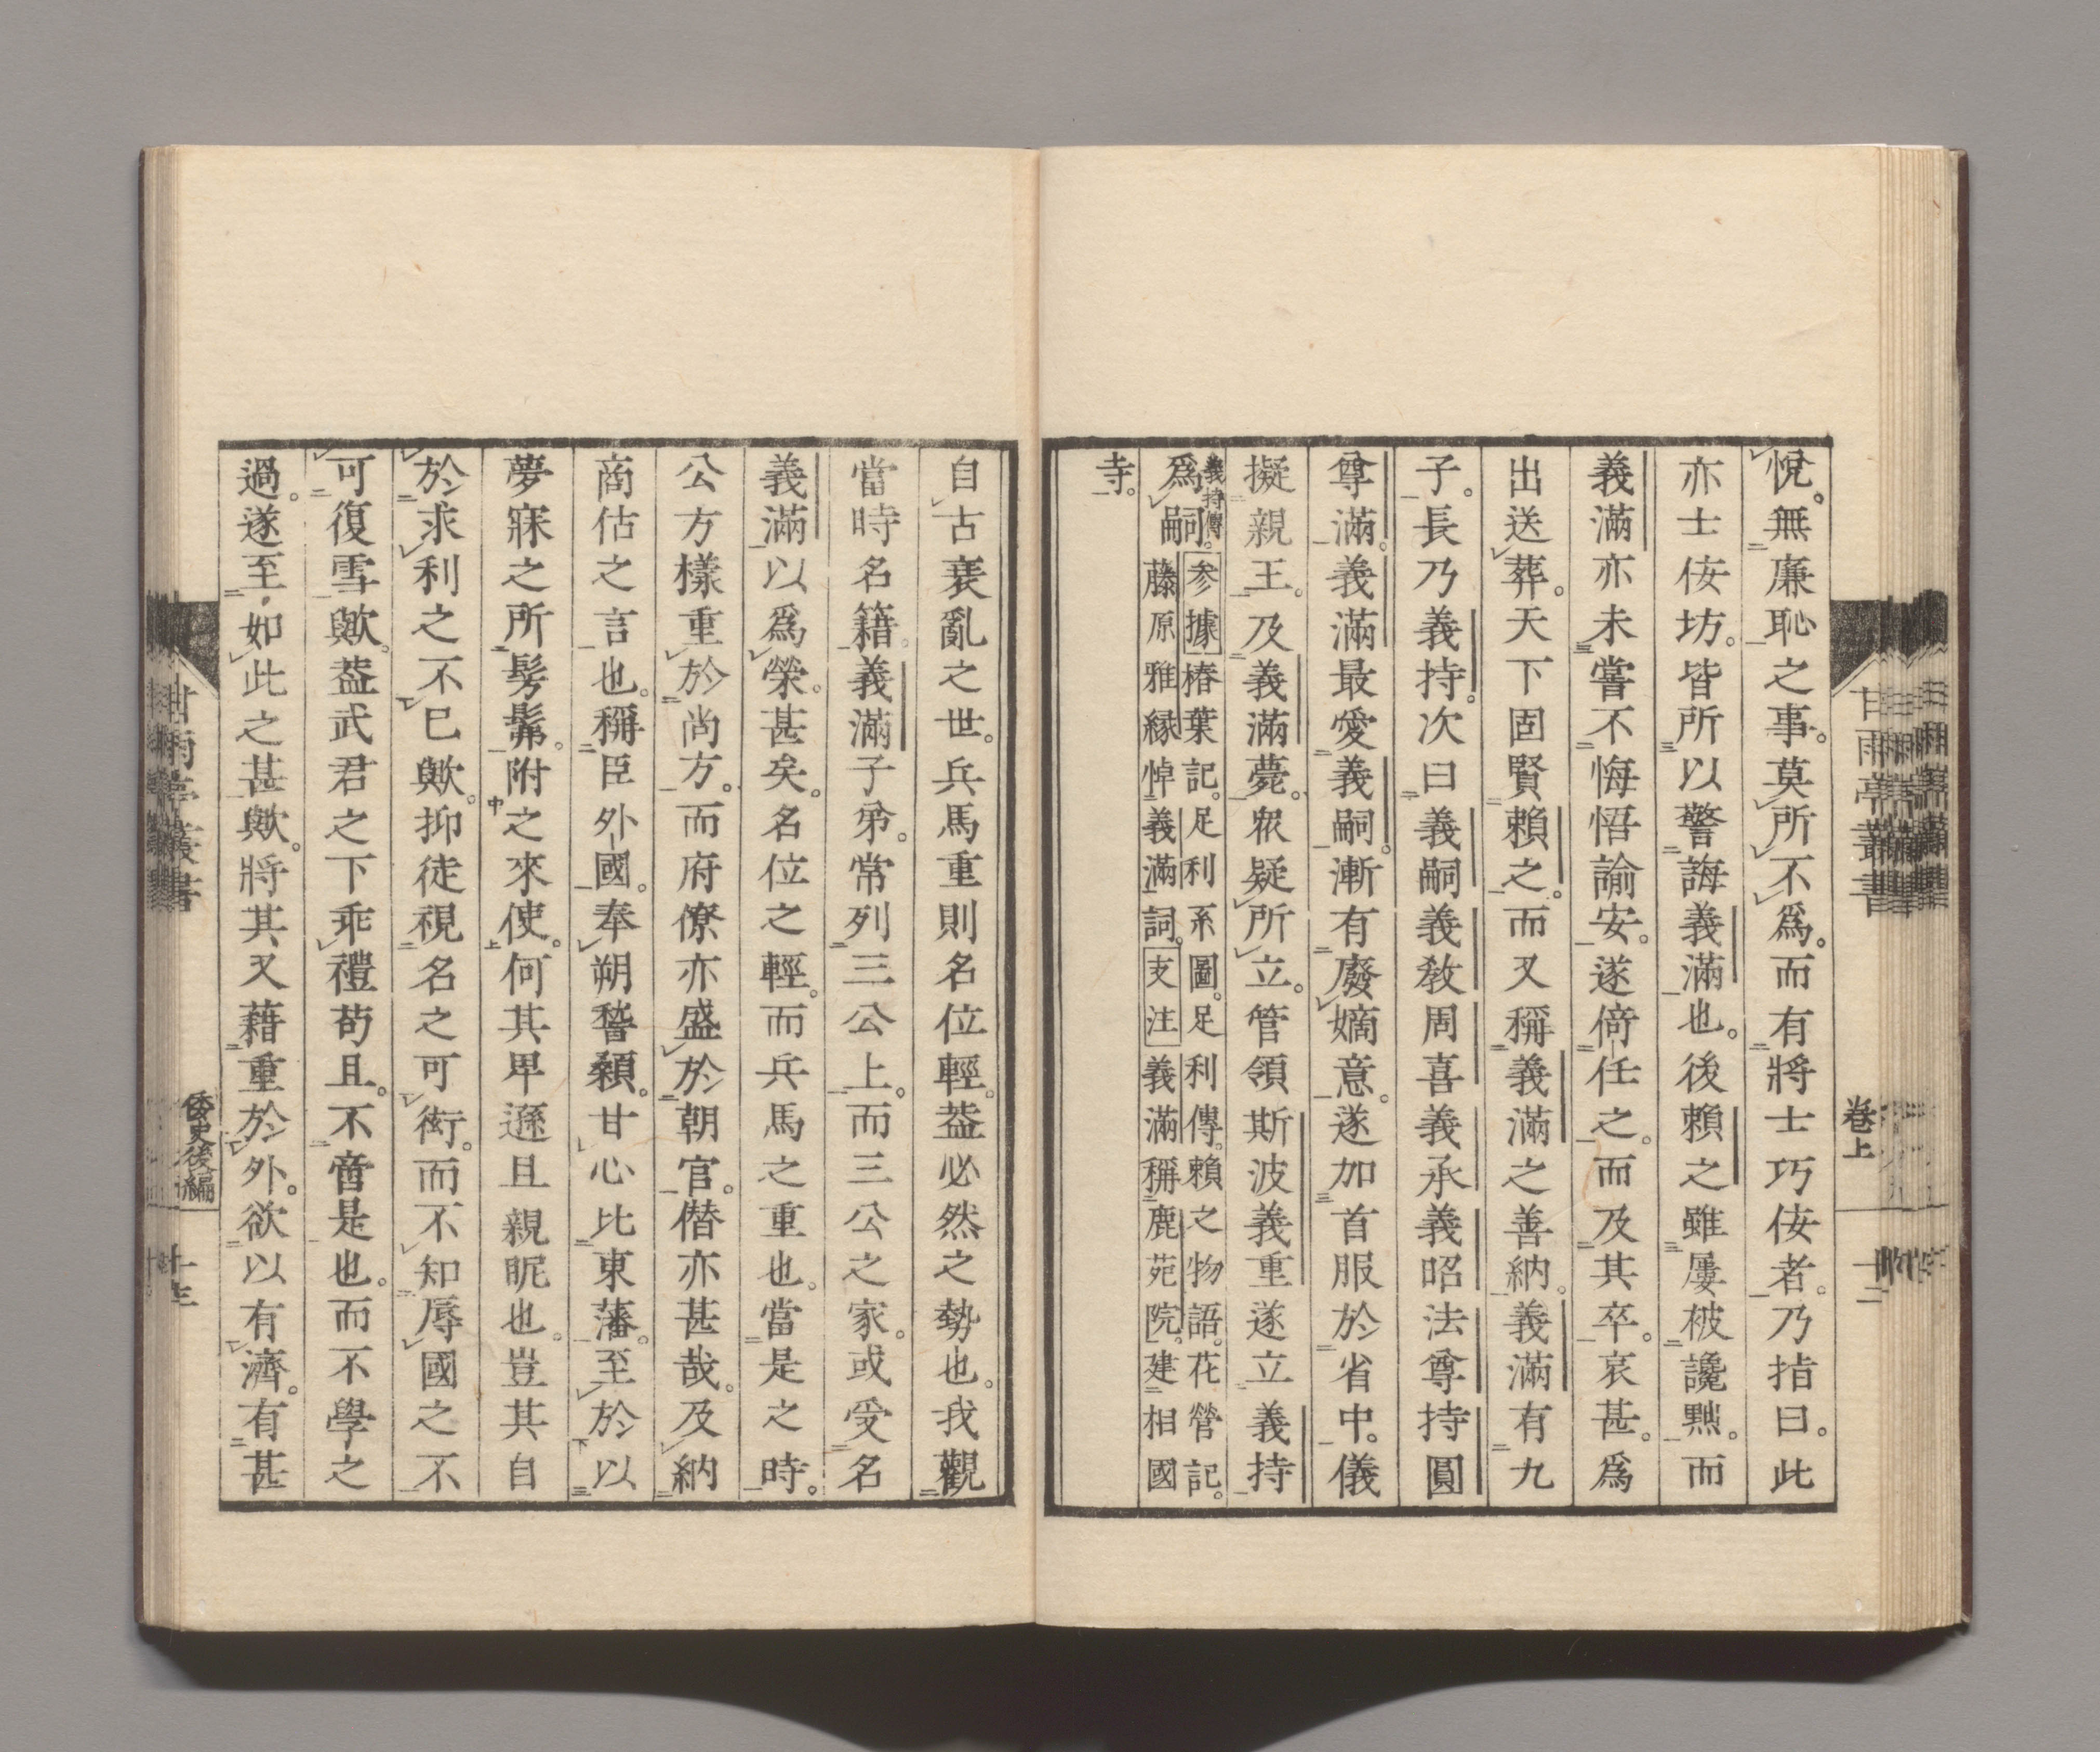 悅。無廉恥之事。莫所不爲。而有將士巧佞者。乃指曰。此
亦士佞坊。皆所以警誨義滿也。後賴之雖屢被讒黜。而
義滿亦未嘗不悔悟諭安。遂倚任之。而及其卒。哀甚。爲
出送葬。天下固賢賴之。而又稱義滿之善納。義滿有九
子。長乃義持。次曰義嗣義教周喜義承義昭法尊持圓
尊滿。義滿最愛義嗣。漸有廢嫡意。遂加首服於省中。儀
擬親王。及義滿薨。衆疑所立。管領斯波義重遂立義持
爲嗣。
義持傳
参據椿葉記。足利系圖。足利傳。賴之物語。花營記。
藤原雅緣悼義滿詞。支注義滿稱鹿苑院。建相國
寺。
甘雨亭叢書
卷上
十二
自古衰亂之世。兵馬重則名位輕。蓋必然之勢也。我觀
當時名籍。義滿子弟。常列三公上。而三公之家。或受名
義滿以爲榮。甚矣。名位之輕。而兵馬之重也。當是之時。
公方樣重於尚方。而府僚亦盛於朝官。僭亦甚哉。及納
商估之言也。稱臣外國。奉朔稽顙。甘心比東藩。至於以
夢寐之所髣髴。附之來使。何其卑遜且親昵也。豈其自
於求利之不已歟。抑徒視名之可衒。而不知辱國之不
可復雪歟。蓋武君之下乖禮苟且。不啻是也。而不學之
過。遂至如此之甚歟。將其又藉重於外。欲以有濟。有甚
甘雨亭叢書
倭史後編
十三